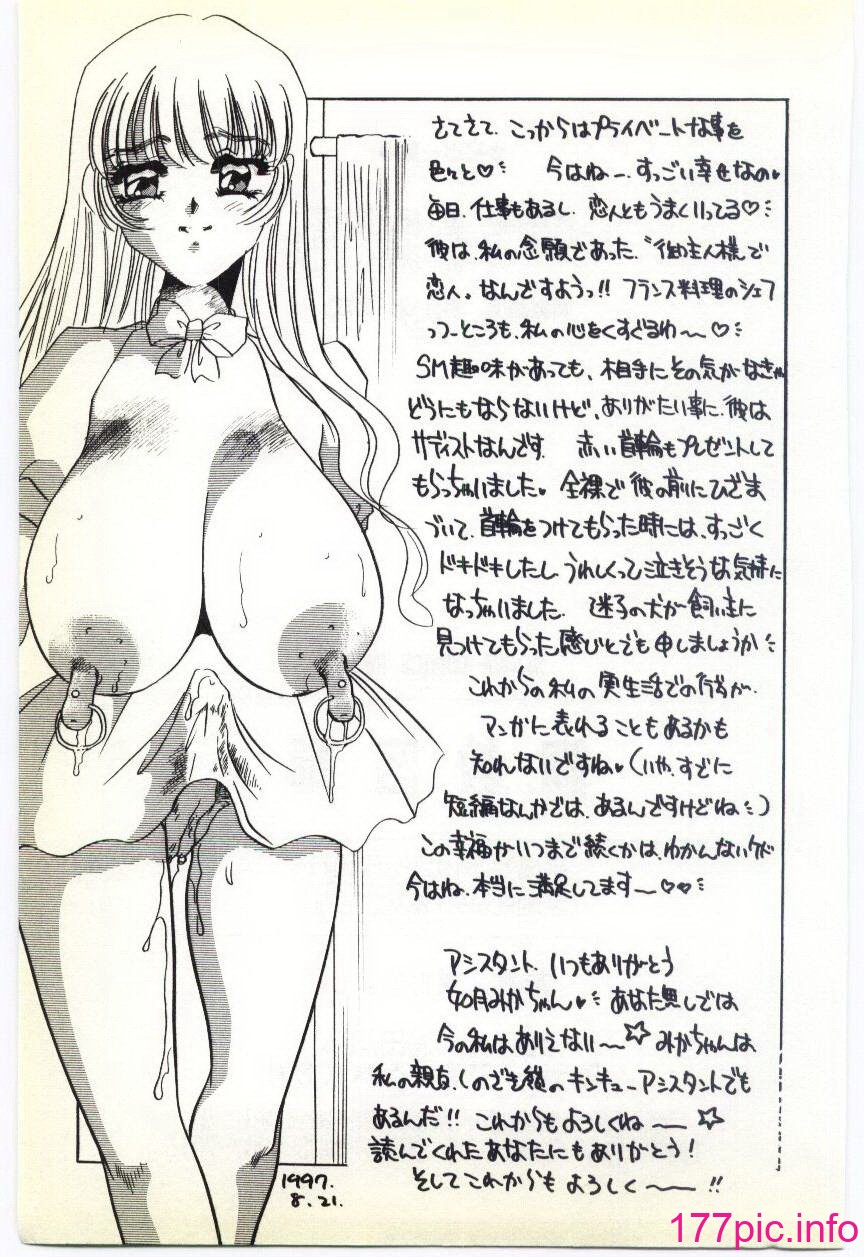 さてさて、こっからはプライベートな事を
色々と♡ 今はね―、すっごい幸せなの♥
毎日、仕事もあるし、恋人ともうまくいってる♡
彼は、私の念願であった、"御主人様"で
恋人。なんですようっ!! フランス料理のシェフ
っつーところも、私の心をくすぐるわ〜♡
SM趣味があっても、相手にその気がなきゃ
どうにもならないけど、ありがたい事に、彼は
サディストなんです。 赤い首輪もプレゼントして
もらっちゃいました♥ 全裸で彼の前にひざま
づいて、首輪をつけてもらった時には、すっごく
ドキドキしたし、うれしくって泣きそうな気持に
なっちゃいました。 迷子の犬が飼い主に
見つけてもらった感じとでも申しましょうか
これからの私の実生活での行為が、
マンガに表れることもあるかも
知れないですね♥(いや、すでに
短編なんかでは、あるんですけどね)
この幸福がいつまで続くかは、わかんないケド
今はね、本当に満足してます〜♡♡
アシスタント、いつもありがとう
如月みかちゃん♥ あなた無しでは
今の私はありえない〜☆ みかちゃんは
私の親友、しのざき嶺のキンキューアシスタントでも
あるんだ!! これからもよろしくね〜☆
読んでくれたあなたにもありがとう!
そしてこれからもよろしく〜!!
1997.
8.21.
177pic.info